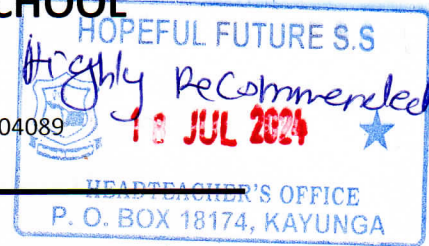 CHOOL
HOPEFUL FUTURE S.S
Highly Recommended
04089
18 JUL 2024
HEADTEACHER'S OFFICE
P. O. BOX 18174, KAYUNGA